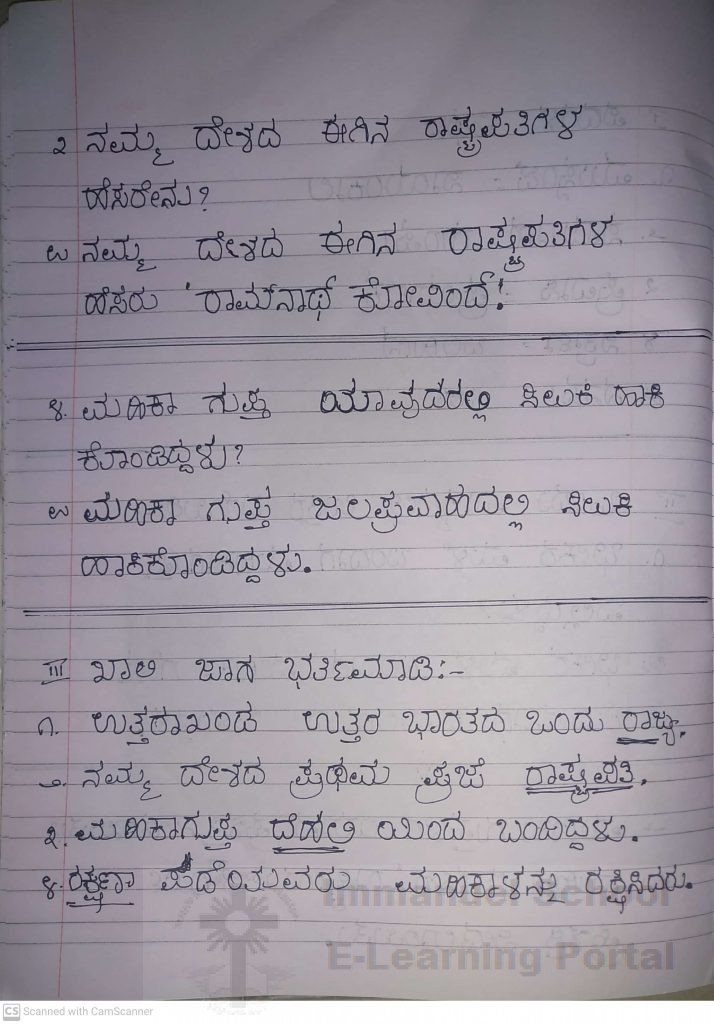 ೩ ನಮ್ಮ ದೇಶದ ಈಗಿನ ರಾಷ್ಟ್ರಪತಿಗಳ
ಹೆಸರೇನು?
ಉ ನಮ್ಮ ದೇಶದ ಈಗಿನ ರಾಷ್ಟ್ರಪತಿಗಳ
ಹೆಸರು 'ರಾಮ್‌ನಾಥ್ ಕೋವಿಂದ್'.
೪. ಮಹಿಕಾ ಗುಪ್ತ ಯಾವುದರಲ್ಲಿ ಸಿಲುಕಿ ಹಾಕಿ
ಕೊಂಡಿದ್ದಳು?
ಉ ಮಹಿಕಾ ಗುಪ್ತ ಜಲಪ್ರವಾಹದಲ್ಲಿ ಸಿಲುಕಿ
ಹಾಕಿಕೊಂಡಿದ್ದಳು.
III ಖಾಲಿ ಜಾಗ ಭರ್ತಿಮಾಡಿ:-
೧. ಉತ್ತರಾಖಂಡ ಉತ್ತರ ಭಾರತದ ಒಂದು ರಾಜ್ಯ.
೨. ನಮ್ಮ ದೇಶದ ಪ್ರಥಮ ಪ್ರಜೆ ರಾಷ್ಟ್ರಪತಿ.
೩. ಮಹಿಕಾಗುಪ್ತ ದೆಹಲಿ ಯಿಂದ ಬಂದಿದ್ದಳು.
೪. ರಕ್ಷಣಾ ಪಡೆಯುವರು ಮಹಿಕಾಳನ್ನು ರಕ್ಷಿಸಿದರು.
Immanuel School
E-Learning Portal
CS Scanned with CamScanner